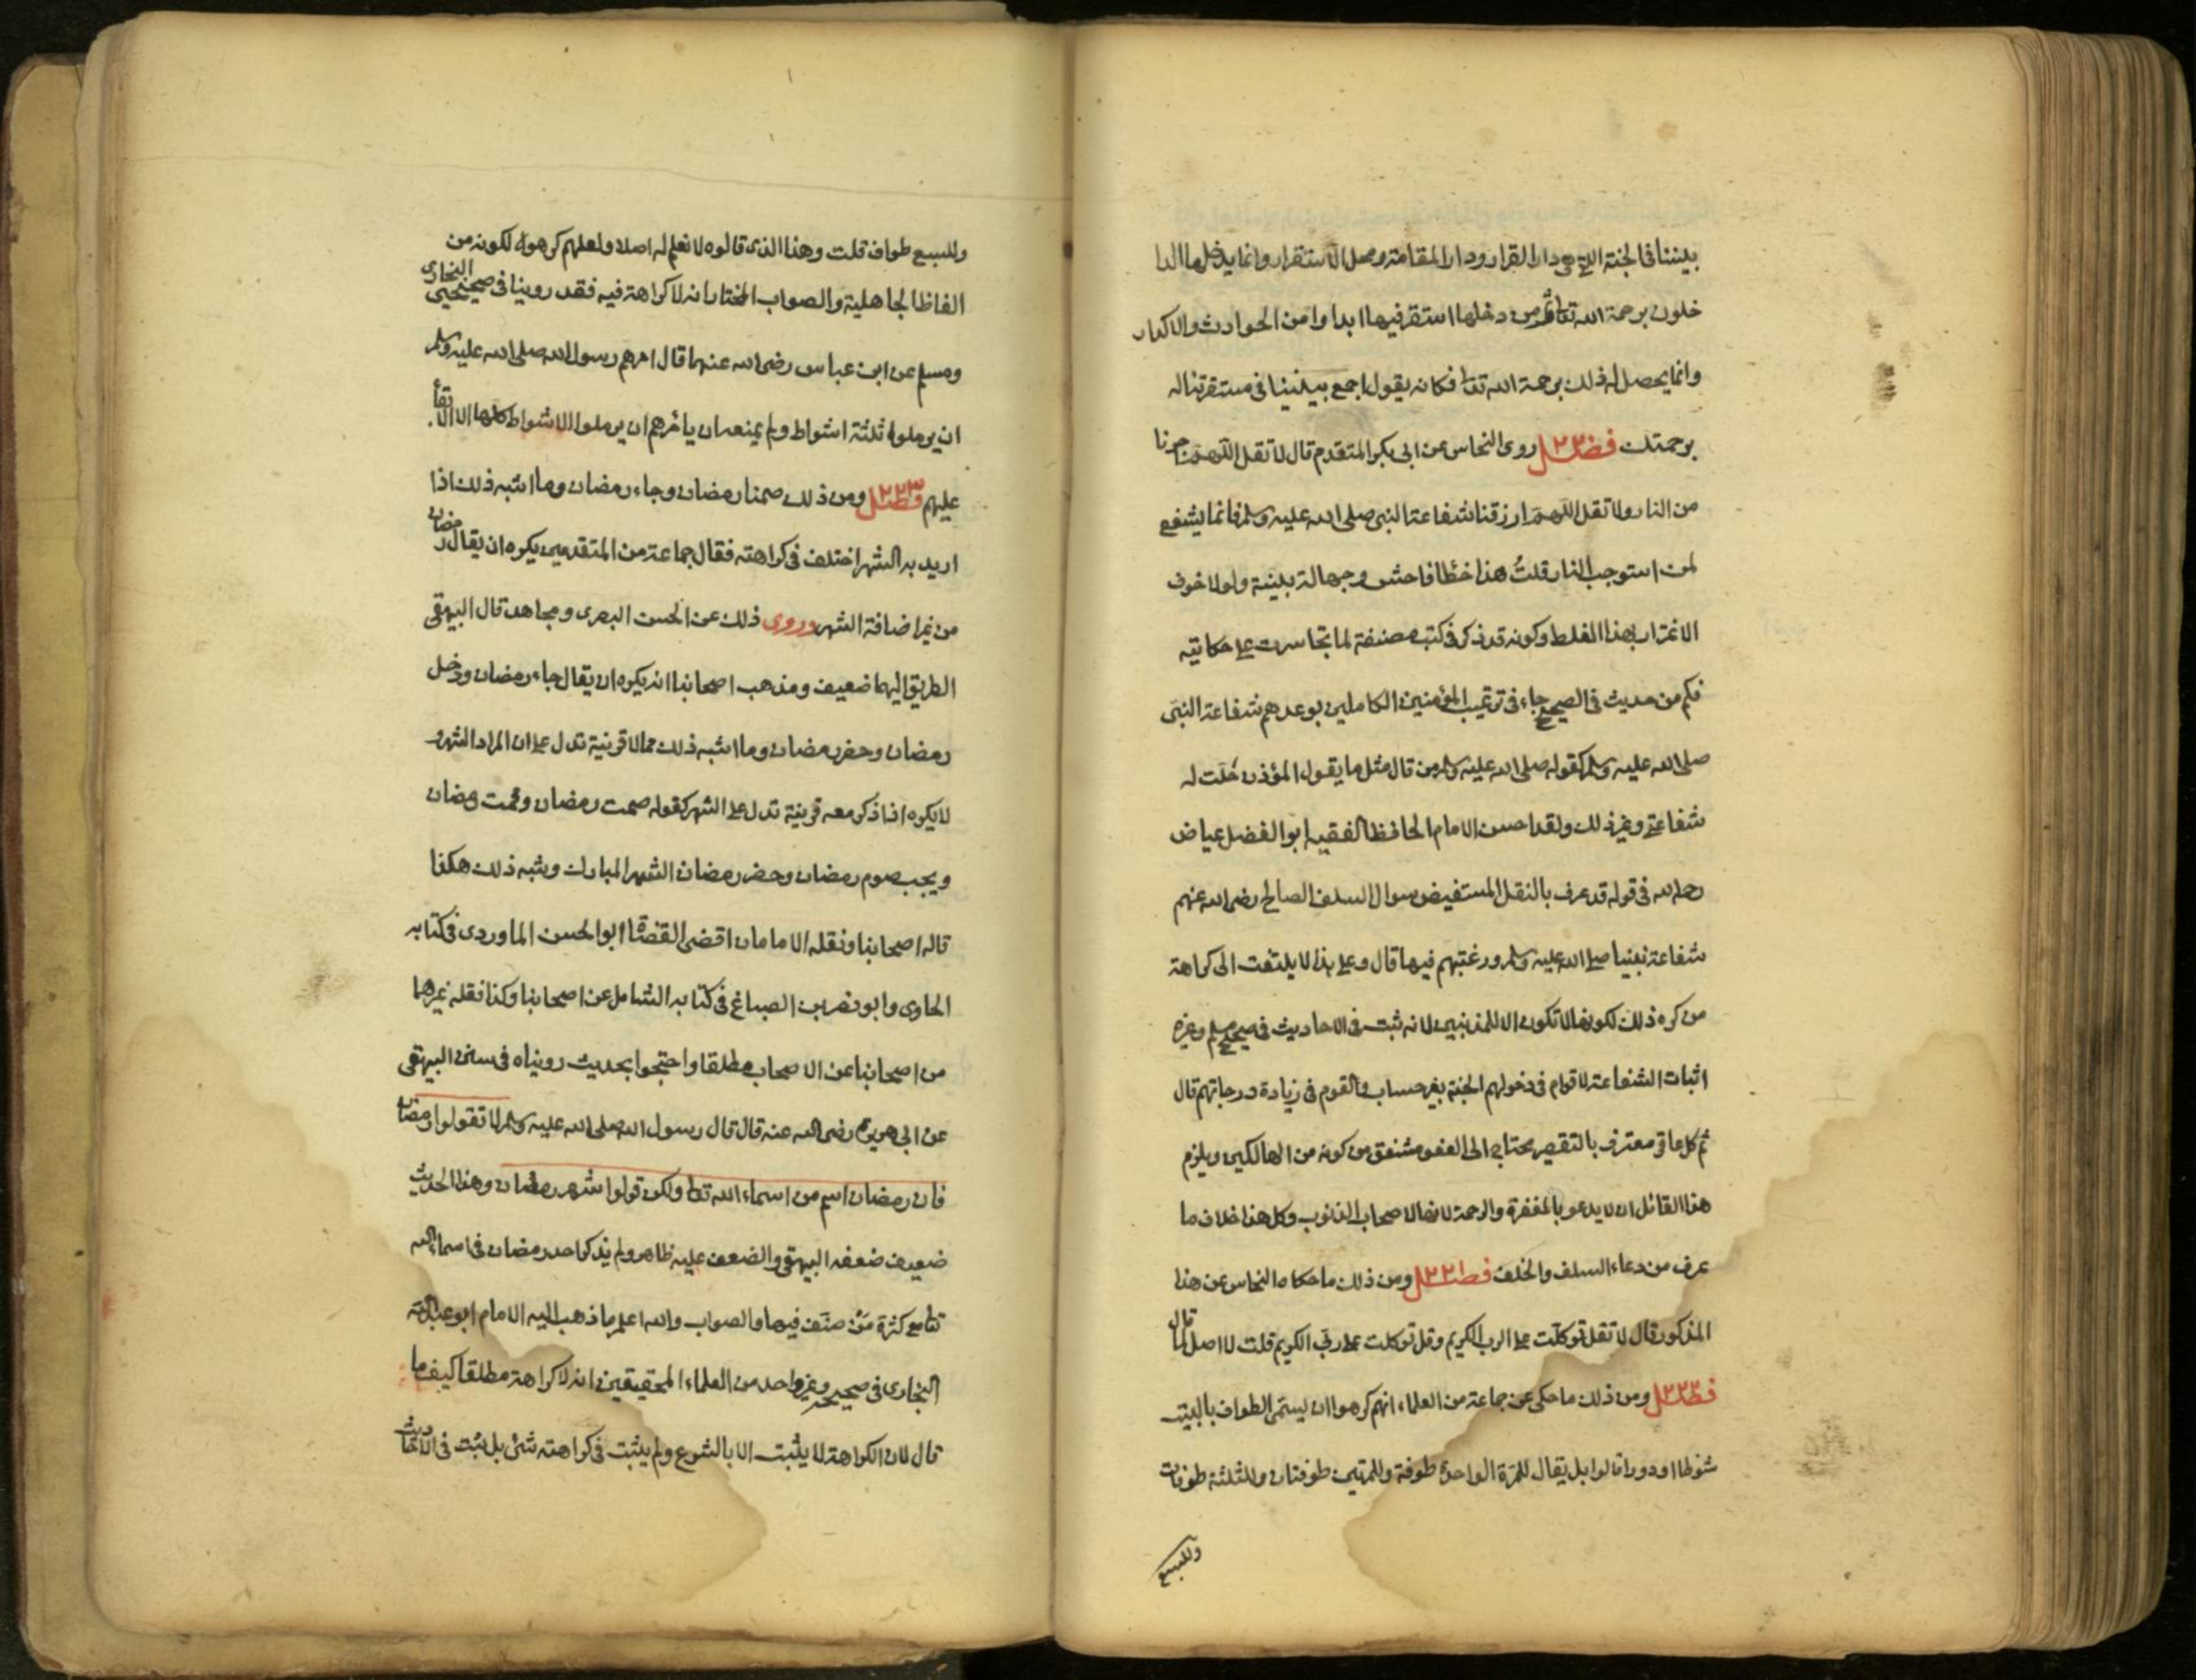 بيننا في الجنة التي هي دار القرار ودار المقامة ومحل الاستقرار وانما يدخلها الدا
خلون برحمة الله تعا ثم من دخلها استقر فيها ابدا وامن الحوادث والاكدار
وانما يحصل له ذلك برحمة الله تعا فكانه يقول اجمع بيننا في مستقر نناله
برحمتك فصل ٢٢٠ روى النحاس عن ابي بكر المتقدم قال لا تقل اللهم اجرنا
من النار ولا تقل اللهم ارزقنا شفاعة النبي صلى الله عليه وسلم فانما يشفع
لمن استوجب النار قلتُ هذا خطا فاحش وجهالة بينة ولولا خوف
الاغترار بهذا الغلط وكونه قد ذكر في كتب مصنفة لما تجاسرت على حكايته
فكم من حديث في الصحيح جاء في ترغيب المؤمنين الكاملين بوعدهم شفاعة النبي
صلى الله عليه وسلم كقوله صلى الله عليه وسلم من قال مثل ما يقول المؤذن حلت له
شفاعتي وغير ذلك ولقد احسن الامام الحافظ الفقيه ابو الفضل عياض
رحمه الله في قوله قد عرف بالنقل المستفيض سوال السلف الصالح رضى الله عنهم
شفاعة نبينا صلى الله عليه وسلم ورغبتهم فيها قال وعلى هذا لا يلتفت الى كراهة
من كره ذلك لكونها لا تكون الا للمذنبين لانه ثبت في الاحاديث في صحيح مسلم وغيره
اثبات الشفاعة لاقوام في دخولهم الجنة بغير حساب والقوم في زيادة درجاتهم قال
ثم كل عاقل معترف بالتقصير محتاج الى العفو مشفق من كونه من الهالكين ويلزم
هذا القائل ان لا يدعو بالمغفرة والرحمة لانها لاصحاب الذنوب وكل هذا خلاف ما
عرف من دعاء السلف والخلف فصل ٢٢١ ومن ذلك ما حكاه النحاس عن هذا
المذكور قال لا تقل توكلت على الرب الكريم وقل توكلت على ربي الكريم قلت لا اصل لما قال
فصل ٢٢٢ ومن ذلك ما حكى عن جماعة من العلماء انهم كرهوا ان يسمى الطواف بالبيت
شوطا او دورا قالوا بل يقال للمرة الواحدة طوفة وللمرتين طوفتان وللثلثة طوفات
وللسبع
وللسبع طواف قلت وهذا الذي قالوه لا نعلم له اصلا ولعلهم كرهوه لكونه من
الفاظ الجاهلية والصواب المختار انه لا كراهة فيه فقد روينا في صحيحي البخارى
ومسلم عن ابن عباس رضى الله عنهما قال امرهم رسول الله صلى الله عليه وسلم
ان يرملوا ثلثة اشواط ولم يمنعه ان يامرهم ان يرملوا الاشواط كلها الا الابقا
عليهم فصل ٢٢٣ ومن ذلك صمنا رمضان وجاء رمضان وما اشبه ذلك اذا
اريد به الشهر اختلف في كراهته فقال جماعة من المتقدمين يكره ان يقال رمضان
من غير اضافة الشهر وروى ذلك عن الحسن البصرى ومجاهد قال البيهقي
الطريق اليهما ضعيف ومذهب اصحابنا انه يكره ان يقال جاء رمضان ودخل
رمضان وحضر رمضان وما اشبه ذلك مما لا قرينة تدل على ان المراد الشهر و
لا يكره اذا ذكر معه قرينة تدل على الشهر كقوله صمت رمضان وقمت رمضان
ويجب صوم رمضان وحضر رمضان الشهر المبارك وشبه ذلك هكذا
قاله اصحابنا ونقله الامامان اقضى القضاة ابو الحسن الماوردى في كتابه
الحاوى وابو نصر بن الصباغ في كتابه الشامل عن اصحابنا وكذا نقله غيرهما
من اصحابنا عن الاصحاب مطلقا واحتجوا بحديث رويناه في سنن البيهقي
عن ابي هريرة رضى الله عنه قال قال رسول الله صلى الله عليه وسلم لا تقولوا رمضان
فان رمضان اسم من اسماء الله تعا ولكن قولوا شهر رمضان وهذا الحديث
ضعيف ضعفه البيهقي والضعف عليه ظاهر ولم يذكر احد رمضان في اسماء الله
تعا مع كثرة من صنف فيها والصواب والله اعلم ما ذهب اليه الامام ابو عبد الله
البخارى في صحيحه وغير واحد من العلماء المحققين انه لا كراهة مطلقا كيف ما
قال لان الكراهة لا يثبت الا بالشرع ولم يثبت في كراهته شئ بل ثبت في الاحاديث